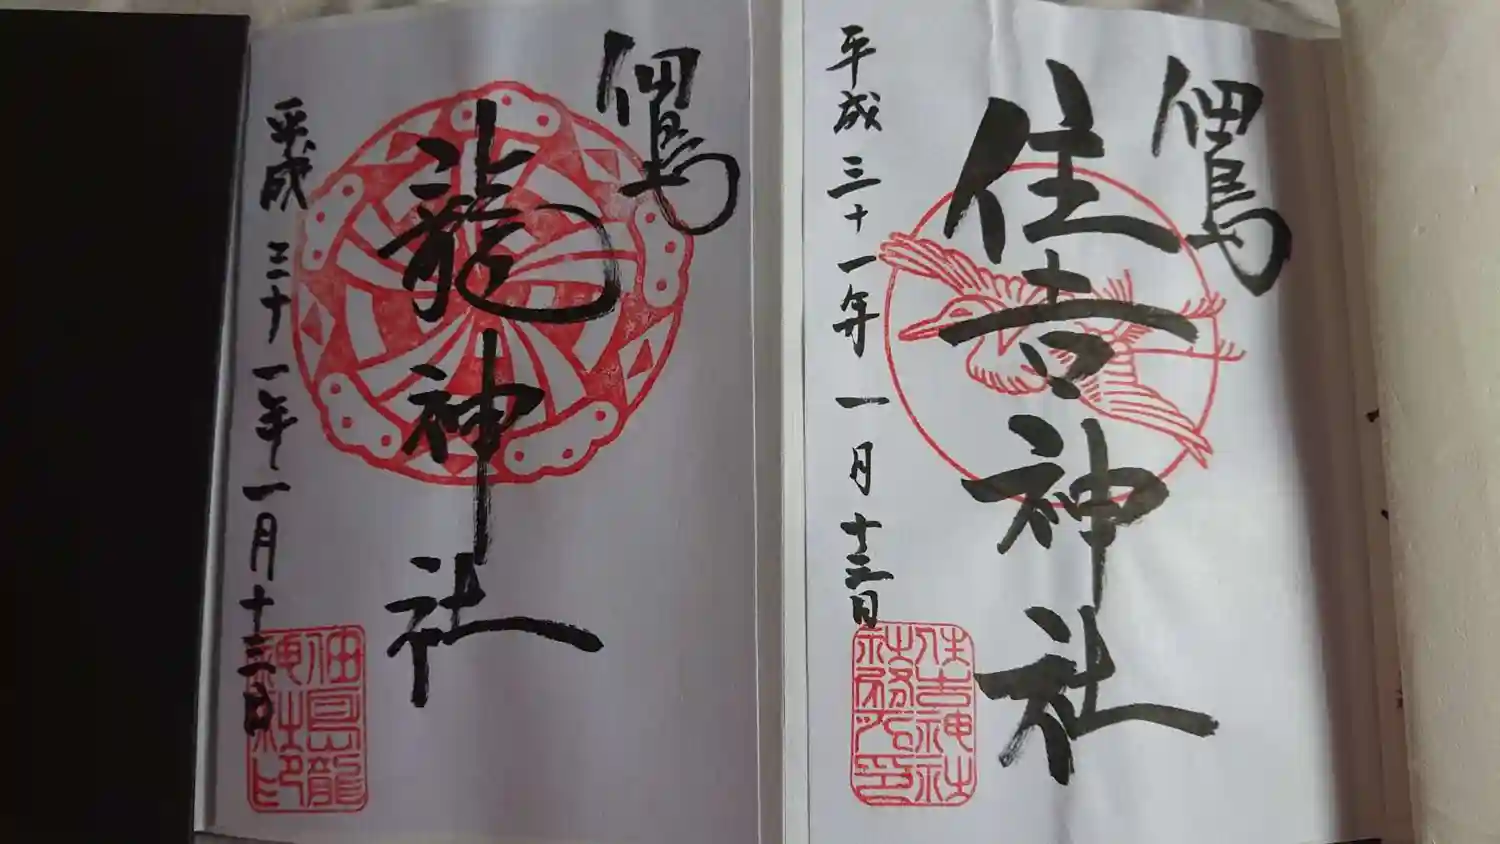 佃島
住吉神社
平成三十一年一月十三日
住吉神社
社務所之印
佃島
龍神社
平成三十一年一月十三日
佃島龍
神社印